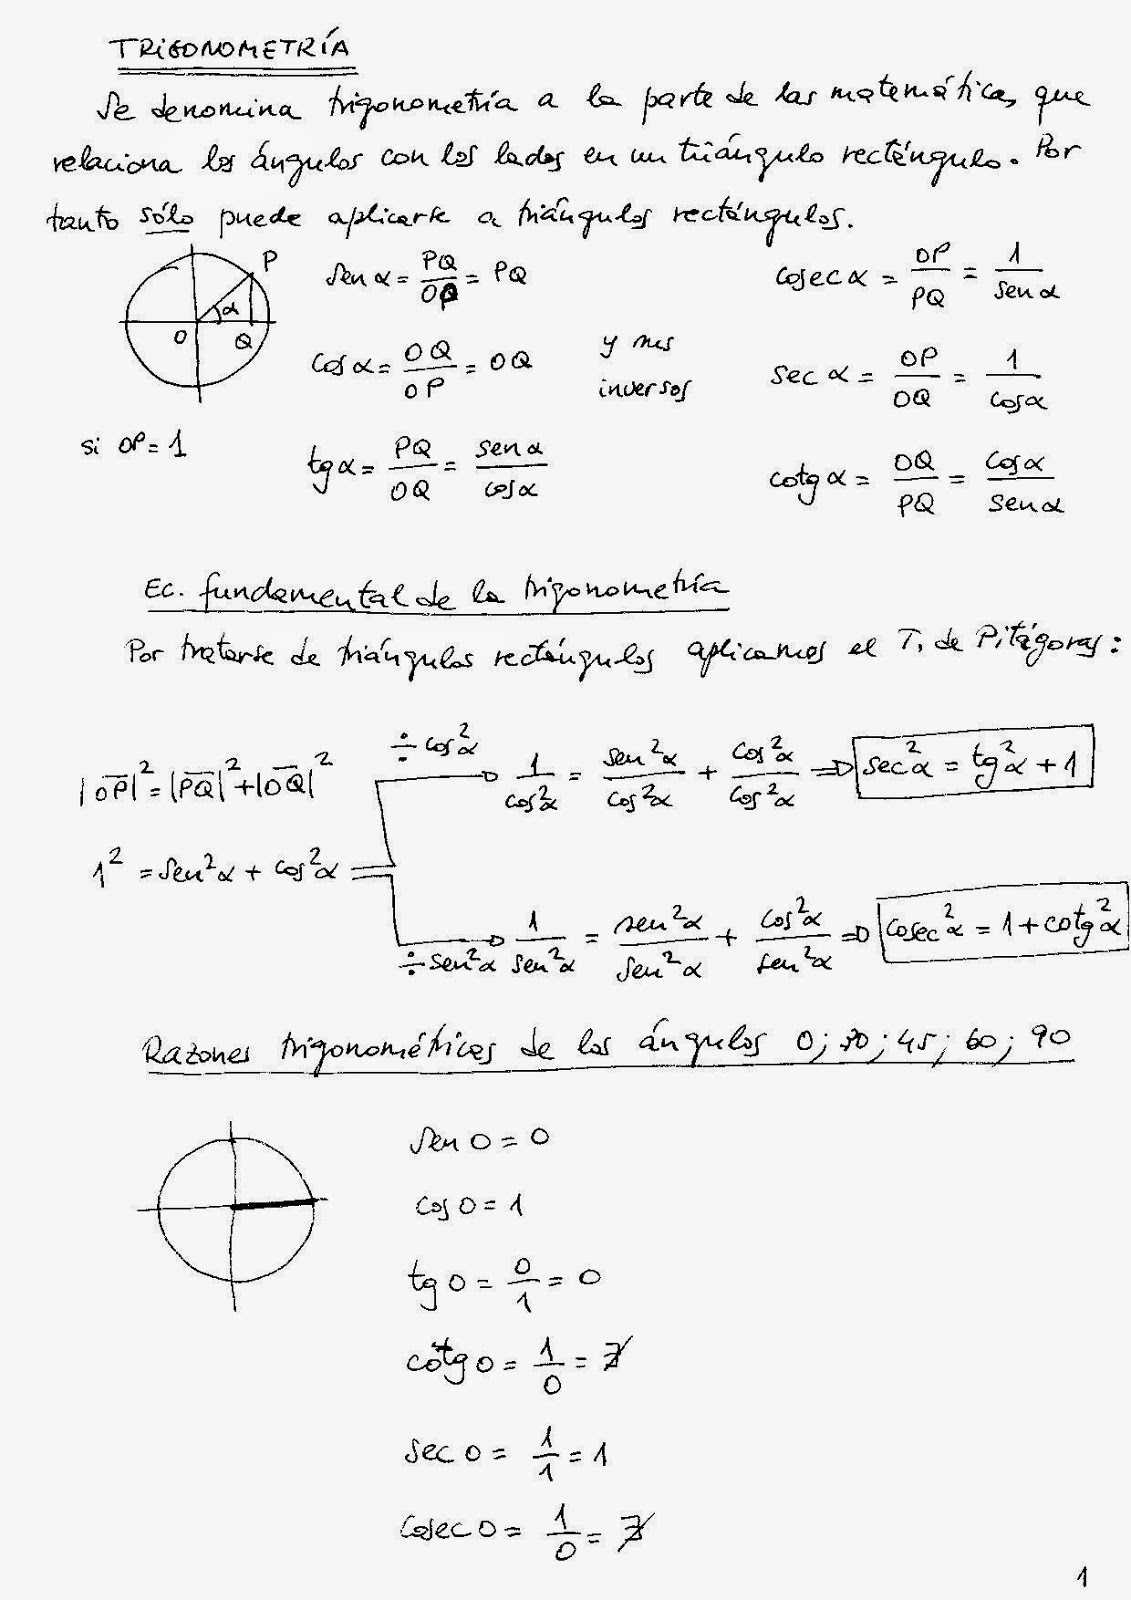 TRIGONOMETRÍA
Se denomina trigonometría a la parte de las matemáticas que
relaciona los ángulos con los lados en un triángulo rectángulo. Por
tanto sólo puede aplicarse a triángulos rectángulos.
P
α
O
Q
si OP = 1
sen α = PQ/OP = PQ
cos α = OQ/OP = OQ
tg α = PQ/OQ = sen α/cos α
y sus
inversos
cosec α = OP/PQ = 1/sen α
sec α = OP/OQ = 1/cos α
cotg α = OQ/PQ = cos α/sen α
Ec. fundamental de la trigonometría
Por tratarse de triángulos rectángulos aplicamos el T. de Pitágoras:
|OP|² = |PQ|² + |OQ|²
1² = sen²α + cos²α ⇒
÷ cos²α
1/cos²α = sen²α/cos²α + cos²α/cos²α ⇒ sec²α = tg²α + 1
÷ sen²α
1/sen²α = sen²α/sen²α + cos²α/sen²α ⇒ cosec²α = 1 + cotg²α
Razones trigonométricas de los ángulos 0; 30; 45; 60; 90
sen 0 = 0
cos 0 = 1
tg 0 = 0/1 = 0
cotg 0 = 1/0 = ∄
sec 0 = 1/1 = 1
cosec 0 = 1/0 = ∄
1